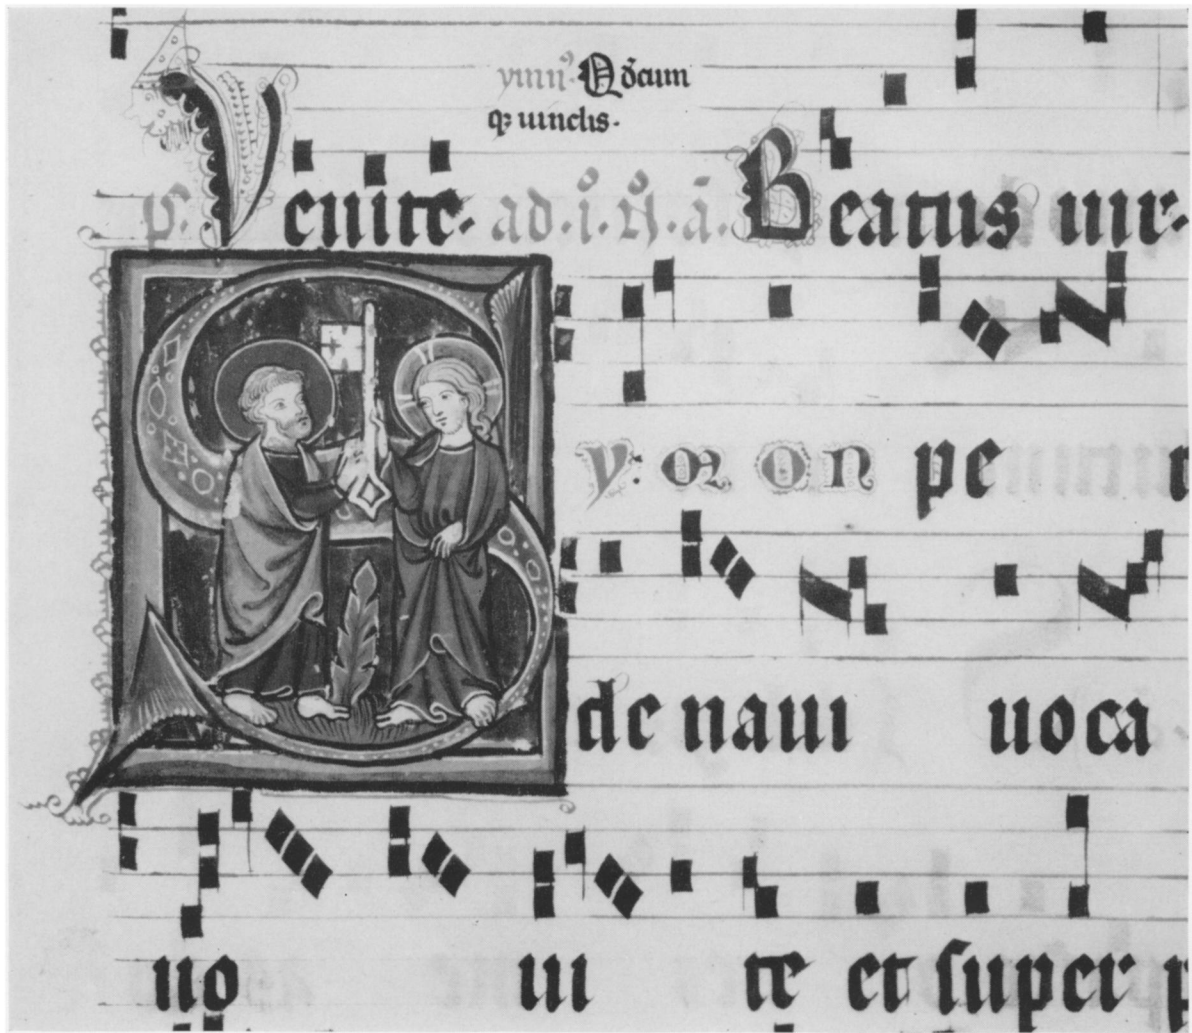 Qdcum
q; uinclis.
Venite. ad .i. N. a. Beatus uir.
Symon pe
de naui uoca
uo ui te et super p